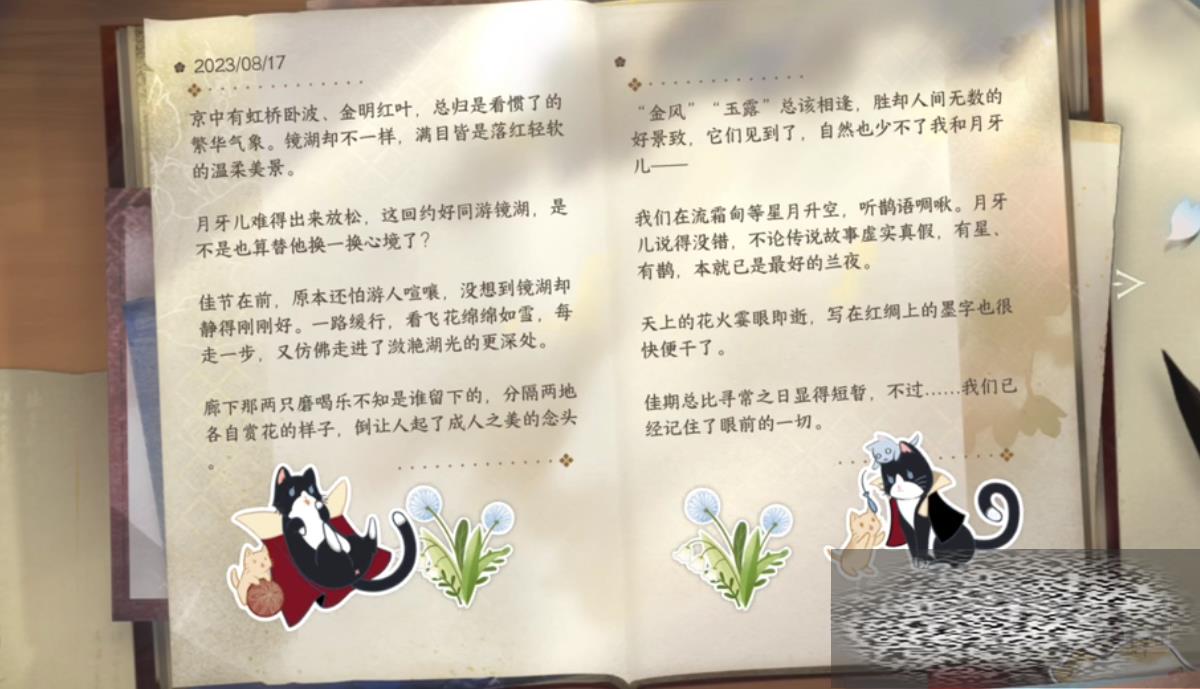 2023/08/17
京中有虹桥卧波、金明红叶，总归是看惯了的
繁华气象。镜湖却不一样，满目皆是落红轻软
的温柔美景。
月牙儿难得出来放松，这回约好同游镜湖，是
不是也算替他换一换心境了？
佳节在前，原本还怕游人喧嚷，没想到镜湖却
静得刚刚好。一路缓行，看飞花绵绵如雪，每
走一步，又仿佛走进了潋滟湖光的更深处。
廊下那两只磨喝乐不知是谁留下的，分隔两地
各自赏花的样子，倒让人起了成人之美的念头
。
“金风”“玉露”总该相逢，胜却人间无数的
好景致，它们见到了，自然也少不了我和月牙
儿——
我们在流霜甸等星月升空，听鹊语啁啾。月牙
儿说得没错，不论传说故事虚实真假，有星、
有鹊，本就已是最好的兰夜。
天上的花火霎眼即逝，写在红绸上的墨字也很
快便干了。
佳期总比寻常之日显得短暂，不过……我们已
经记住了眼前的一切。